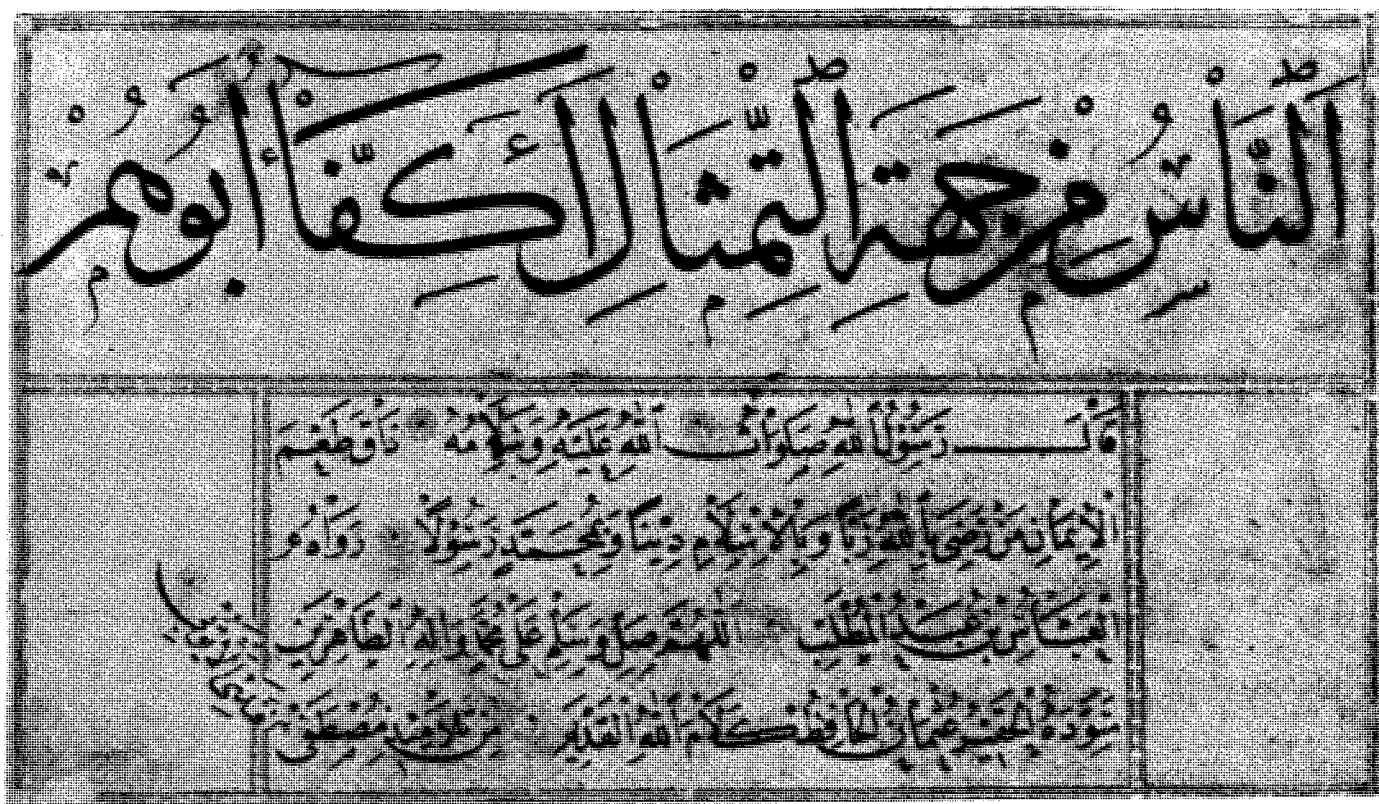 اَلنَّاسُ مِنْ جِهَةِ الْتِّمْثَالِ أَكِفَّاءُ أَبُوهُمْ
قَالَ رَسُولُ اللهِ صَلَوَاتُ اللهِ عَلَيْهِ وَسَلَامُهُ ذَاقَ طَعْمَ
الْإِيمَانِ مَنْ رَضِيَ بِاللهِ رَبًّا وَبِالْإِسْلَامِ دِينًا وَبِمُحَمَّدٍ رَسُولًا رَوَاهُ
الْعَبَّاسُ بْنُ عَبْدِ الْمُطَّلِبِ اَللّٰهُمَّ صَلِّ وَسَلِّمْ عَلَى مُحَمَّدٍ وَآلِهِ الطَّاهِرِينَ
سَوَّدَهُ الْحَقِيرُ عُثْمَانُ الْحَافِظُ كَلَامَ اللهِ الْقَدِيرِ مِنْ تَلَامِيذِ مُصْطَفَى
الْأَيُّوبِي